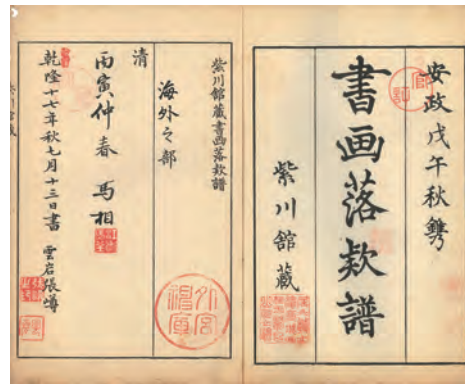 安政戊午秋鐫
官許
書画落欵譜
紫川舘蔵
紫川舘蔵書画落欵譜
海外之部
清
丙寅仲春 馬相
乾隆十七年秋七月十三日書 雲岩張